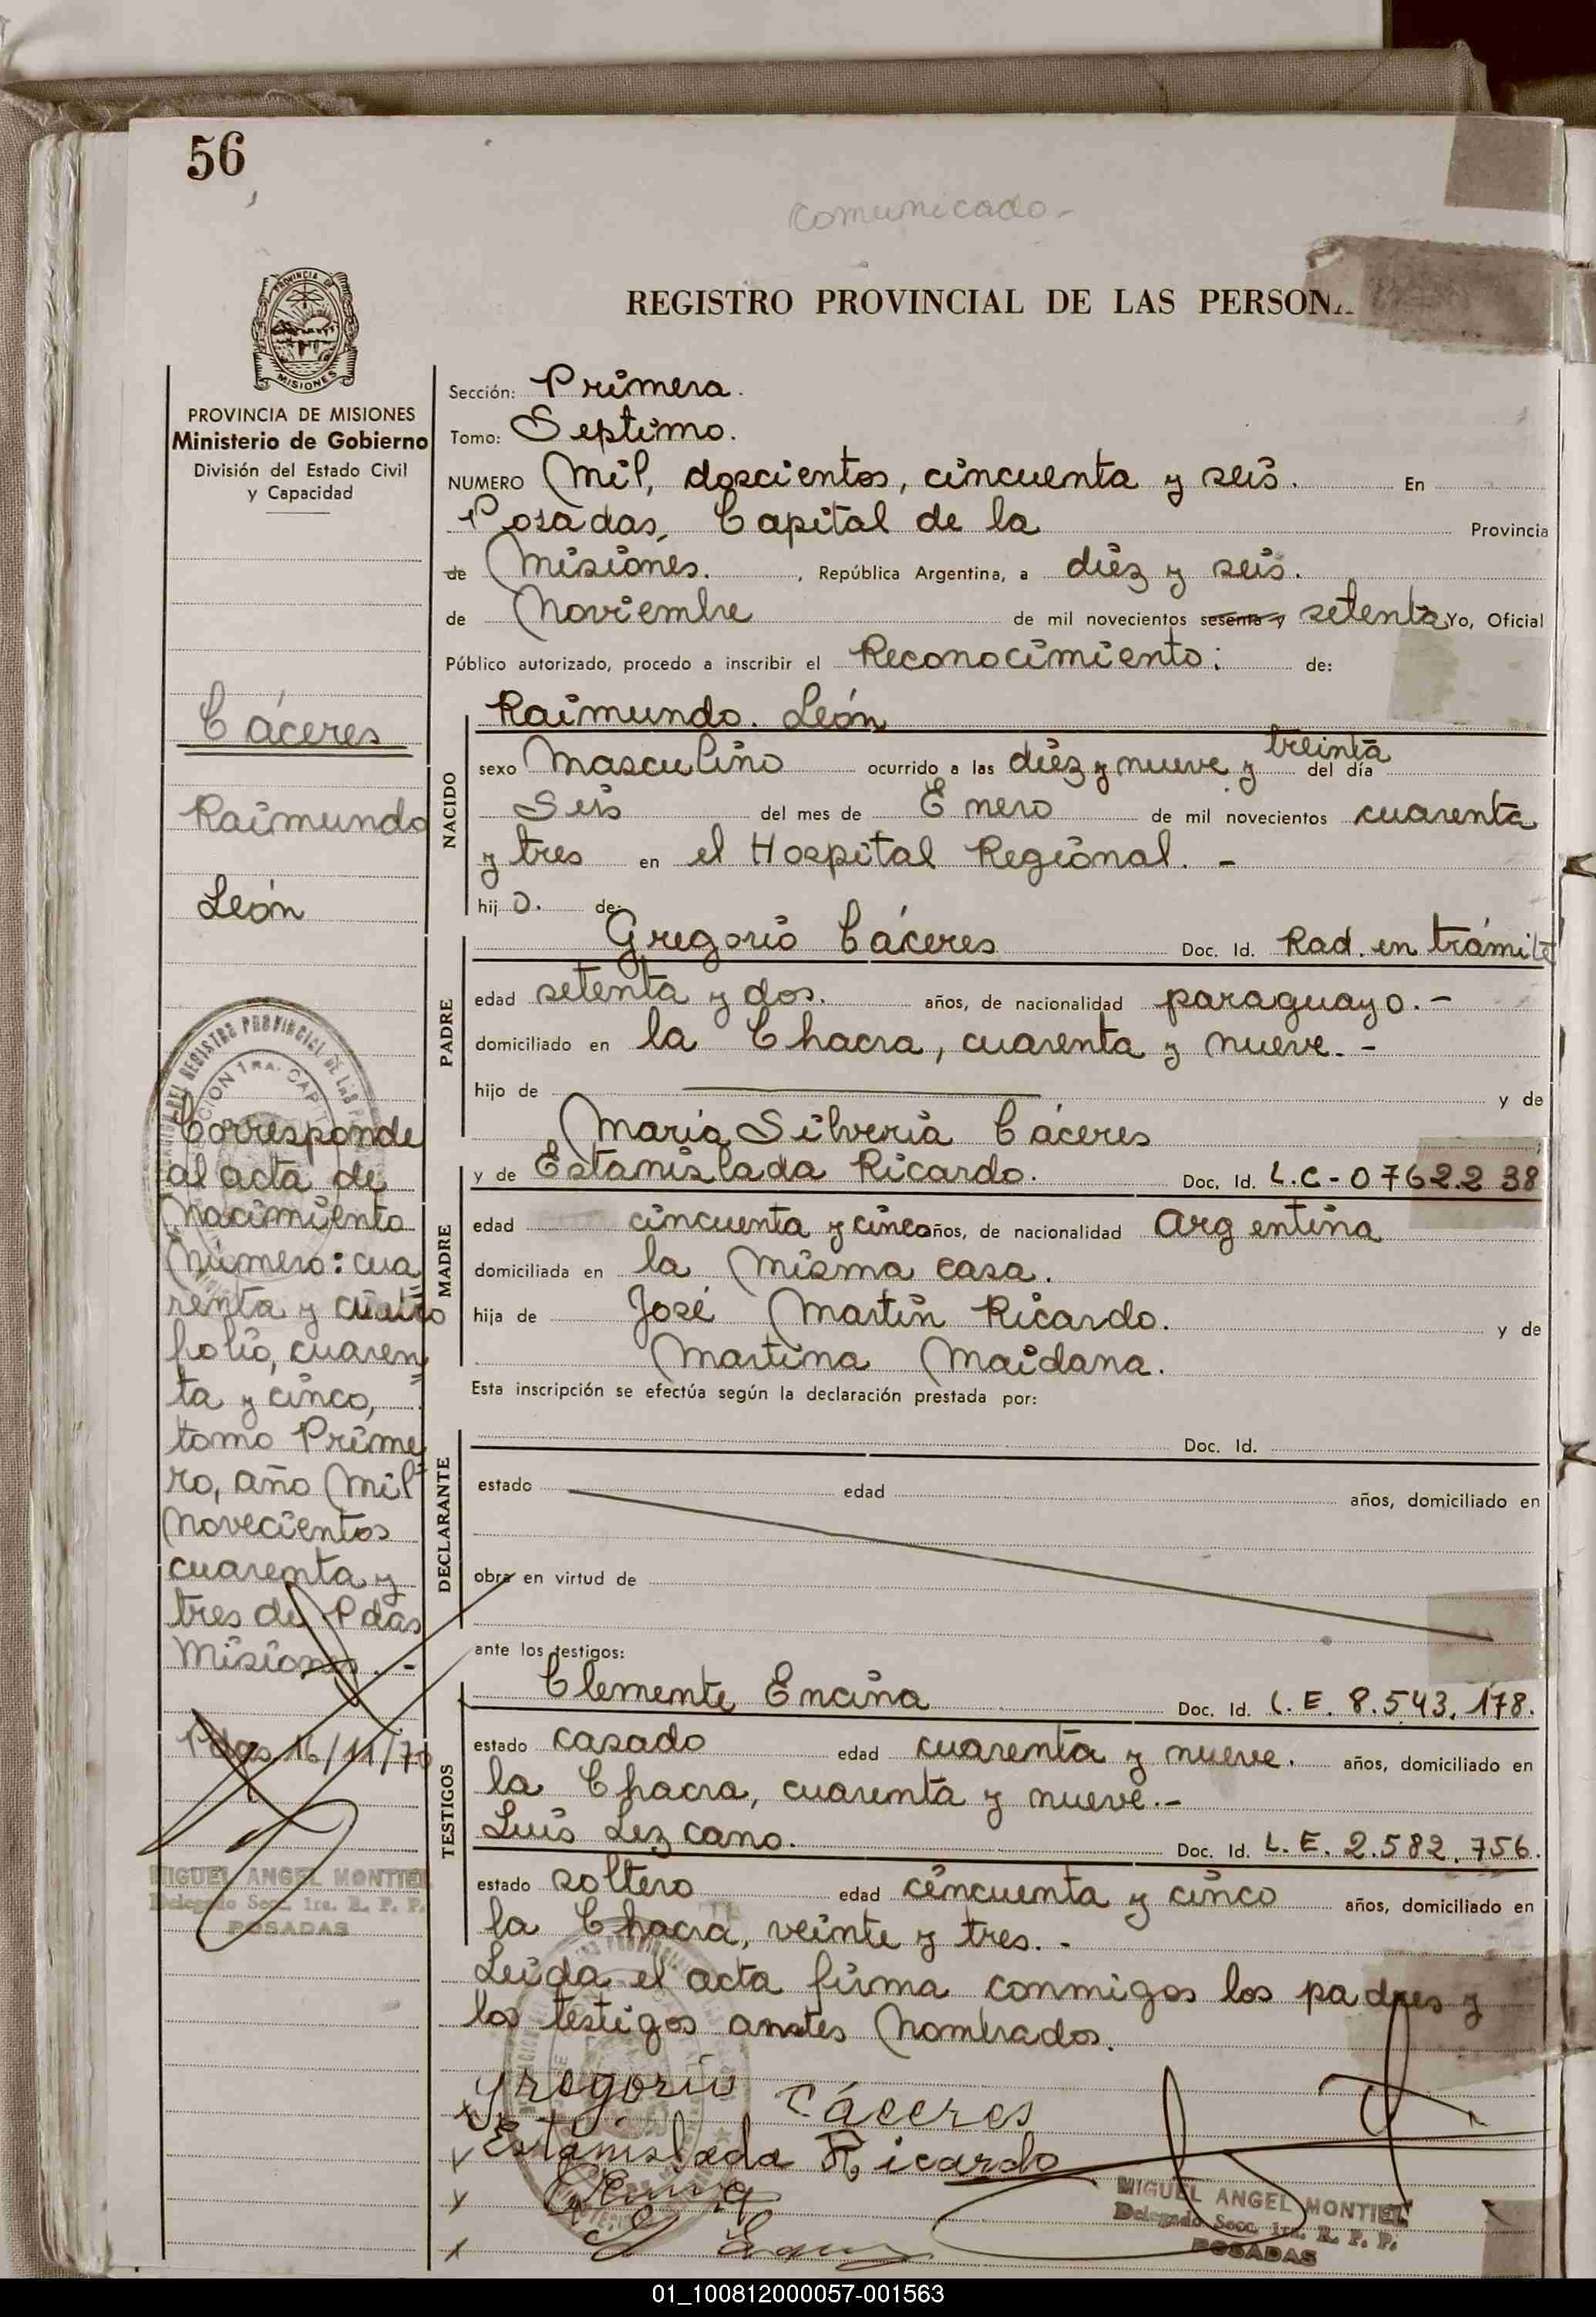 56
Comunicado-
PROVINCIA DE
MISIONES
REGISTRO PROVINCIAL DE LAS PERSONA
PROVINCIA DE MISIONES
Ministerio de Gobierno
División del Estado Civil
y Capacidad
Cáceres
Raimundo
León
Corresponde
al acta de
Nacimiento
Número: cua
renta y cuatro
folio, cuaren
ta y cinco,
tomo Prime
ro, año Mil
Novecientos
cuarenta y
tres de Pdas
Misiones.-
Pdas, 16/11/70
MIGUEL ANGEL MONTIEL
Delegado Secc. 1ra. R. P. P.
POSADAS
Sección: Primera.
Tomo: Septimo.
NUMERO Mil, doscientos, cincuenta y seis. En
Posadas, Capital de la Provincia
de Misiones. , República Argentina, a diez y seis.
de Noviembre de mil novecientos sesenta y setenta Yo, Oficial
Público autorizado, procedo a inscribir el Reconocimiento: de:
NACIDO
Raimundo. León
sexo Masculino ocurrido a las diez y nueve y treinta del día
Seis del mes de Enero de mil novecientos cuarenta
y tres en el Hospital Regional. -
hij o. de:
PADRE
Gregorio Cáceres Doc. Id. Rad. en trámite
edad setenta y dos. años, de nacionalidad paraguayo.-
domiciliado en la Chacra, cuarenta y nueve.-
hijo de y de
María Silveria Cáceres
MADRE
y de Estanislada Ricardo. Doc. Id. L.C-0762.238
edad cincuenta y cinco años, de nacionalidad argentina
domiciliada en la misma casa.
hija de José Martin Ricardo. y de
Martina Maidana.
Esta inscripción se efectúa según la declaración prestada por:
DECLARANTE
Doc. Id.
estado edad años, domiciliado en
obra en virtud de
ante los testigos:
TESTIGOS
Clemente Encina Doc. Id. L.E. 8.543.178.
estado casado edad cuarenta y nueve. años, domiciliado en
la Chacra, cuarenta y nueve.-
Luis Lezcano. Doc. Id. L.E. 2.582.756.
estado soltero edad cincuenta y cinco años, domiciliado en
la Chacra, veinte y tres.-
Leida el acta firma conmigos los padres y
los testigos anstes Nombrados.
Gregorio Cáceres
Estanislada Ricardo
MIGUEL ANGEL MONTIEL
Delegado Secc. 1ra. R. P. P.
POSADAS
01_100812000057-001563